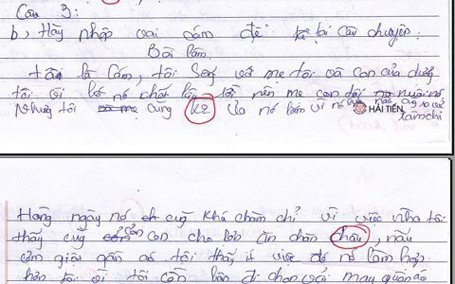 Câu 3:
b, Hãy nhập vai cám để kể lại câu chuyện.
Bài làm.
tôi là Cám, tôi sống với mẹ tôi và con của dượng
tôi vì bố nó chết nên mẹ con tôi nuôi nó
Nhưng tôi cũng kệ nó luôn vì nó
HẢI TIẾN
làm chi
Hằng ngày nó cũng khá chăm chỉ vì việc nhà tôi
thấy cũng còn con cho lợn ăn chăn châu, nấu
cơm giặt quần áo tôi thấy ít việc đó nó làm hợp
hơn tôi vì tôi còn bận đi chơi và may quần áo